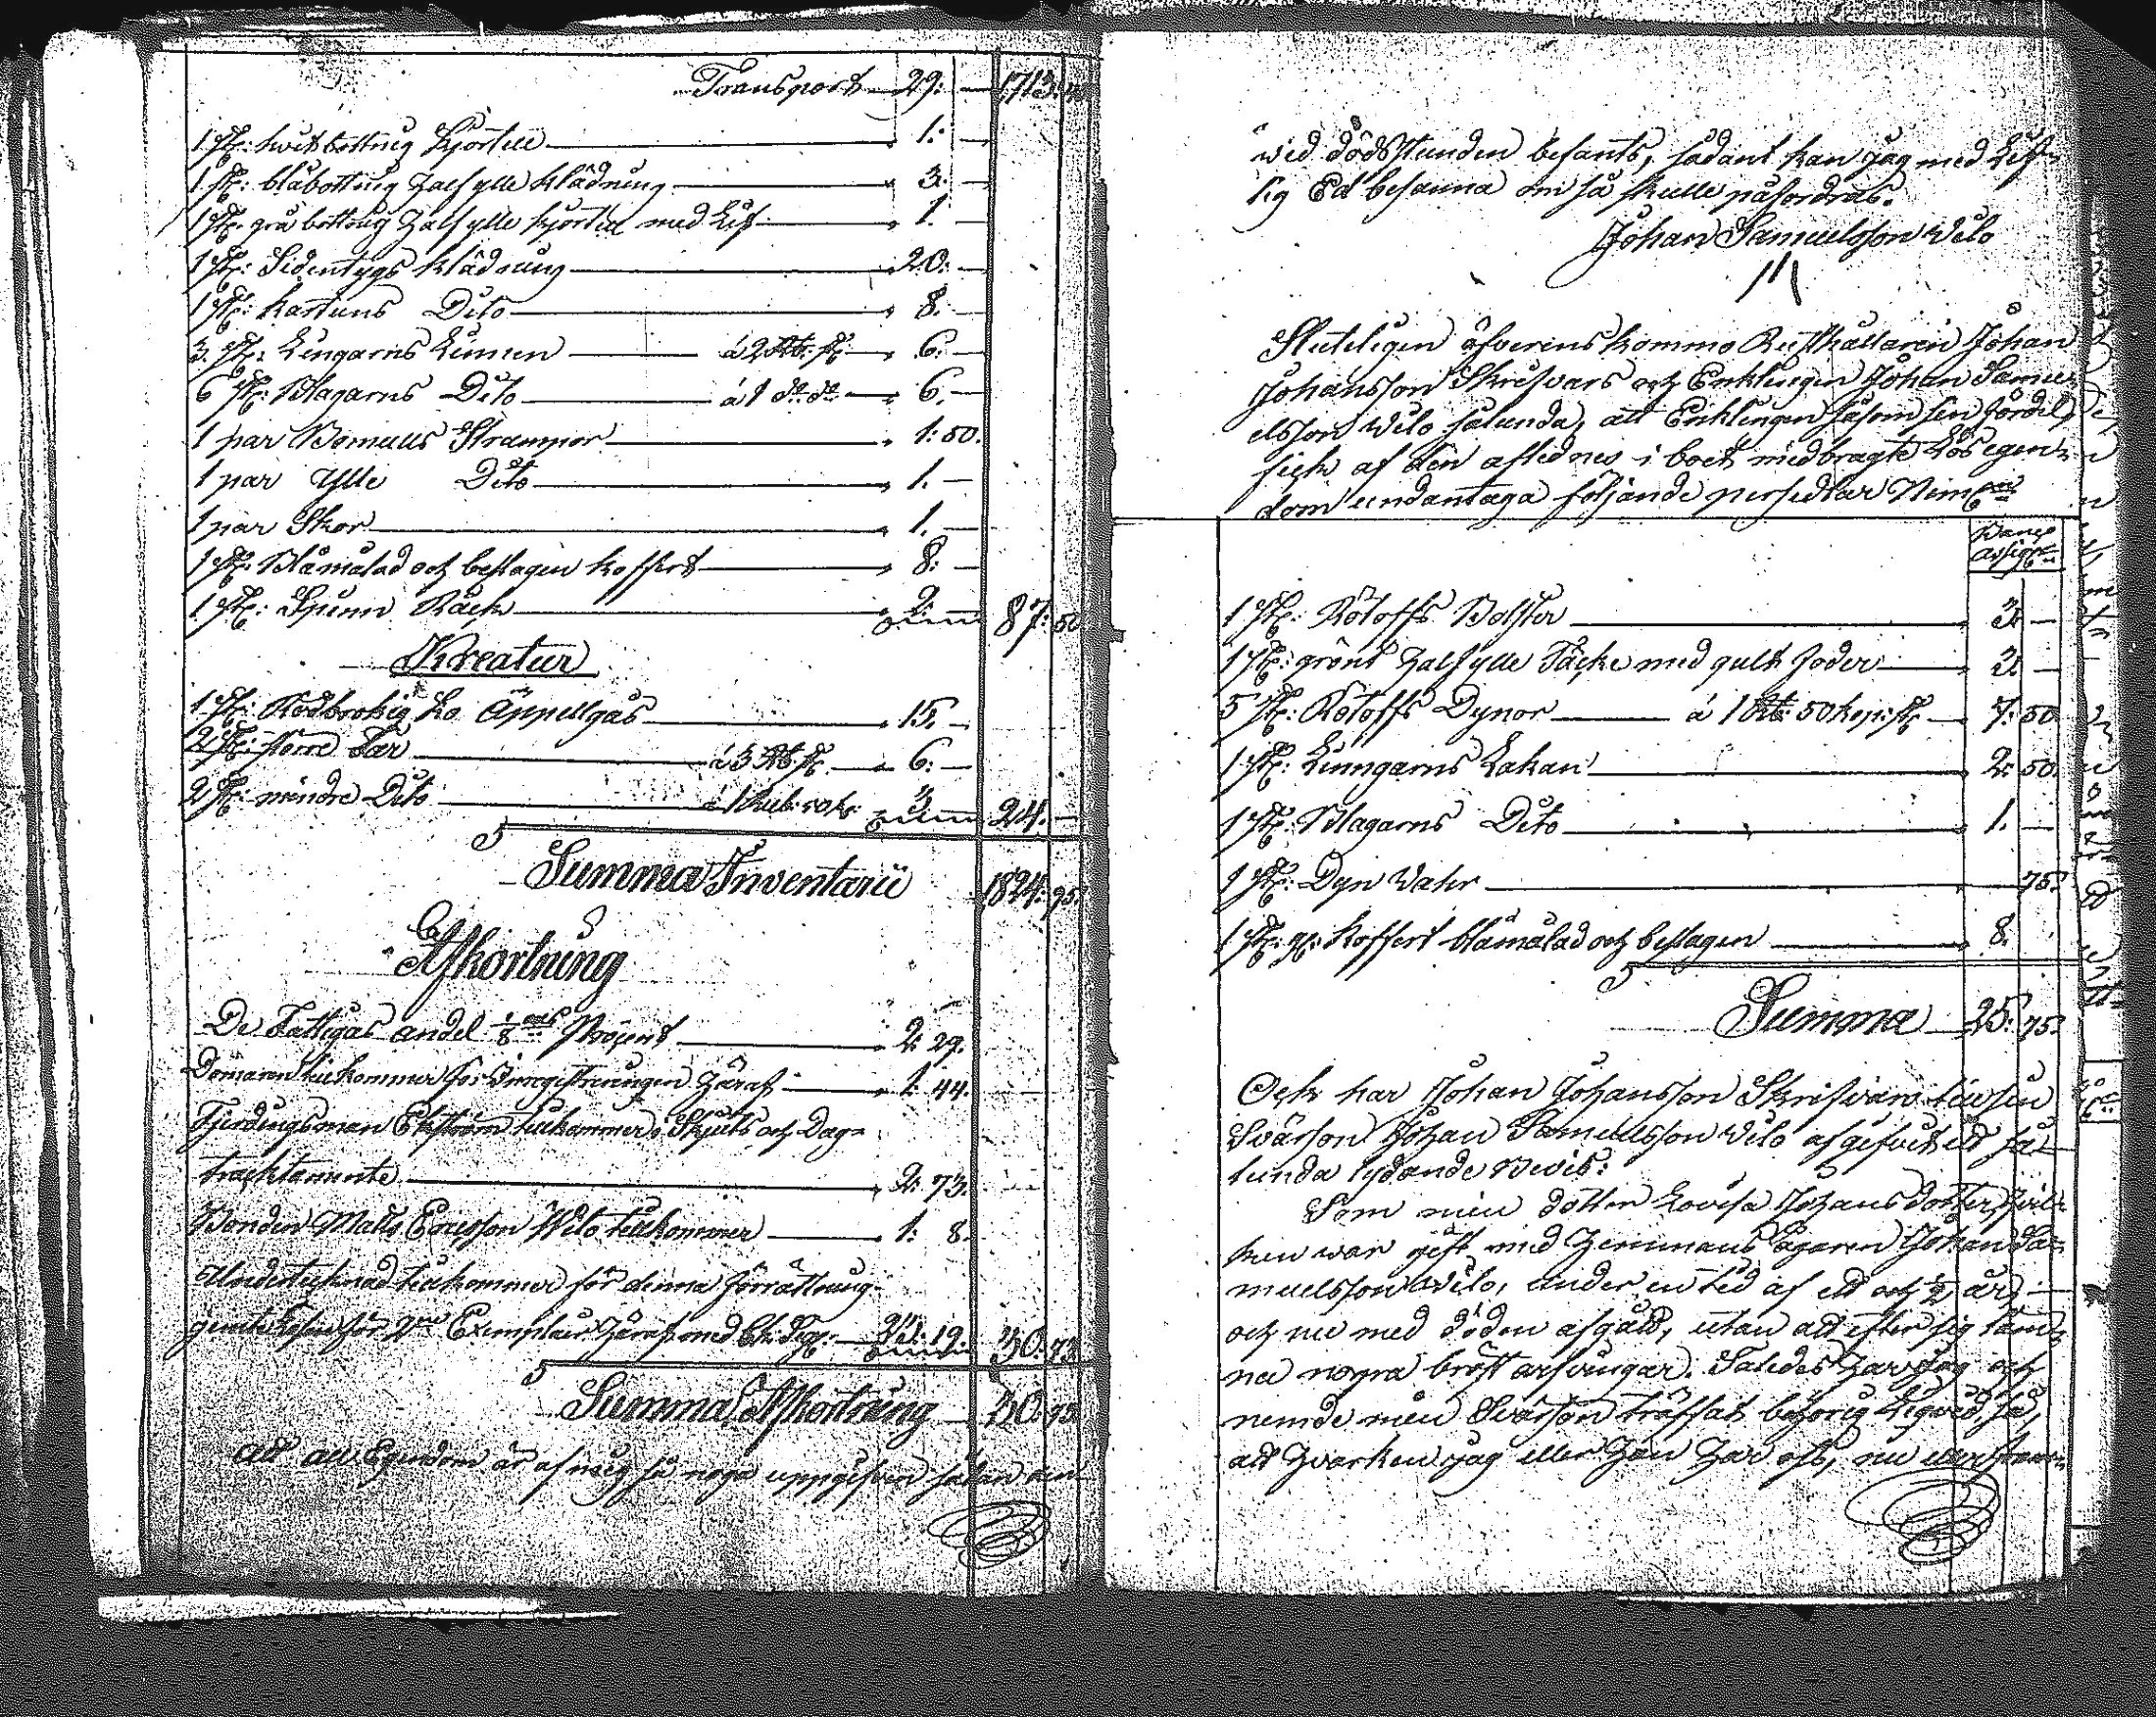 Transport 29: — 1,713:
1 st: hwitbottnig Kjortill 1: —
1 st: blåbottnig halfylle klädning 3: —
1 st: grå bottnig halfylle kjortel med Lif 1. —
1 st: Sidentygs klädning 20: —
1 st: Kartuns Dito 8. —
3 st: Lingarns Linnen á 2 Rb: st 6: —
6 st: Blagarns Dito á 1 do do 6. —
1 par Bomulls Strumpor 1: 50.
1 par Ylle Dito 1. —
1 par Skor 1. —
1 st: Blåmålad och beslagen koffert 8: —
1 st: Spinn Råck 2: — 87: 50
Kreatur
1 st: Rödbrokig ko Äppellgås 15. —
2 st: större Får á 3 Rb. st. 6: —
2 st: mindre Dito á 1 Rub: 50 k: 3 — 24. —
Summa Inventarii 1,824: 95.
Afkortning
De Fattigas andel 1/8 Procent 2: 29.
Domaren tillkommer för Inregistreringen häraf 1: 44.
Fjerdingsman Ekström tillkommer i Skjuts och Dag-
tracktamente 2: 73.
Bonden Matts Ericsson Wilo tillkommer 1: 8.
Undertecknad tillkommer för denna förrättning
jemte Lösen för 2ne Exemplar häraf med Ch: Sig: 19. 30: 73
Summa Afkortning 30: 73
Att all Egendom är af mig så noga uppgifven sådan den
wid dödsstunden befants, sådant kan jag med Lif-
lig Ed besanna om så skulle påfordras.
Johan Samuelsson Wilo
Sluteligen öfverens kommo Rusthållaren Johan
Johansson Skrifvars och Enklingen Johan Samu-
elsson Wilo sålunda, att Enklingen såsom sin fördel
fick af den aflednes i boet medbragte Lös egen-
dom undantaga följande persedlar Nemn
Banco
assign
1 st: Rötoffs Bolster 3. —
1 st: grönt halfylle Täcke med gult foder 3. —
5 st: Rötoffs Dynor á 1 Rb: 50 kop: st 7: 50
1 st: Linngarns Lakan 2: 50.
1 st: Blagarns Dito 1. —
1 st: Dyn Wahr 75.
1 st: Koffert blåmålad och beslagen 8.
Summa 25: 75.
Och har Johan Johansson Skrifvars till sin
Svärson Johan Samuelsson Wilo afgifvit ett så-
lunda lydande Bevis:
Som min dotter Lovisa Johansdotter, hvil-
ken war gift med Hemmans Egaren Johan Sa-
muelsson Wilo, under en tid af ett och ½ år,
och nu med döden afgått, utan att efter sig läm-
na nogra bröst arfvingar. Således har jag och
nemde min Svärson träffat behörig Liqvid, så
att hvarken jag eller han har oss, nu eller fram-